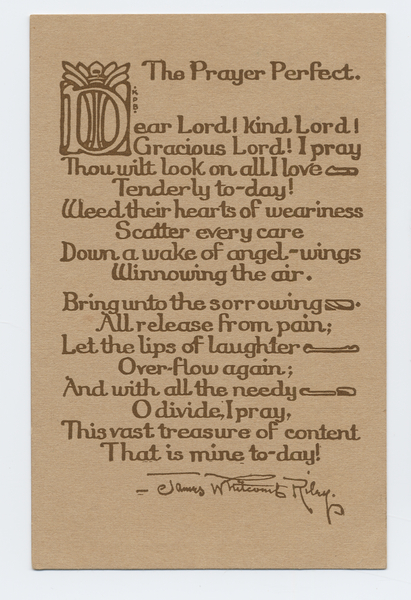 The Prayer Perfect.
Dear Lord! Kind Lord!
Gracious Lord! I pray
Thou wilt look on all I love
Tenderly to-day!
Weed their hearts of weariness
Scatter every care
Down a wake of angel-wings
Winnowing the air.
Bring unto the sorrowing
All release from pain;
Let the lips of laughter
Over-flow again;
And with all the needy
O divide, I pray,
This vast treasure of content
That is mine to-day!
- James Whitcomb Riley.